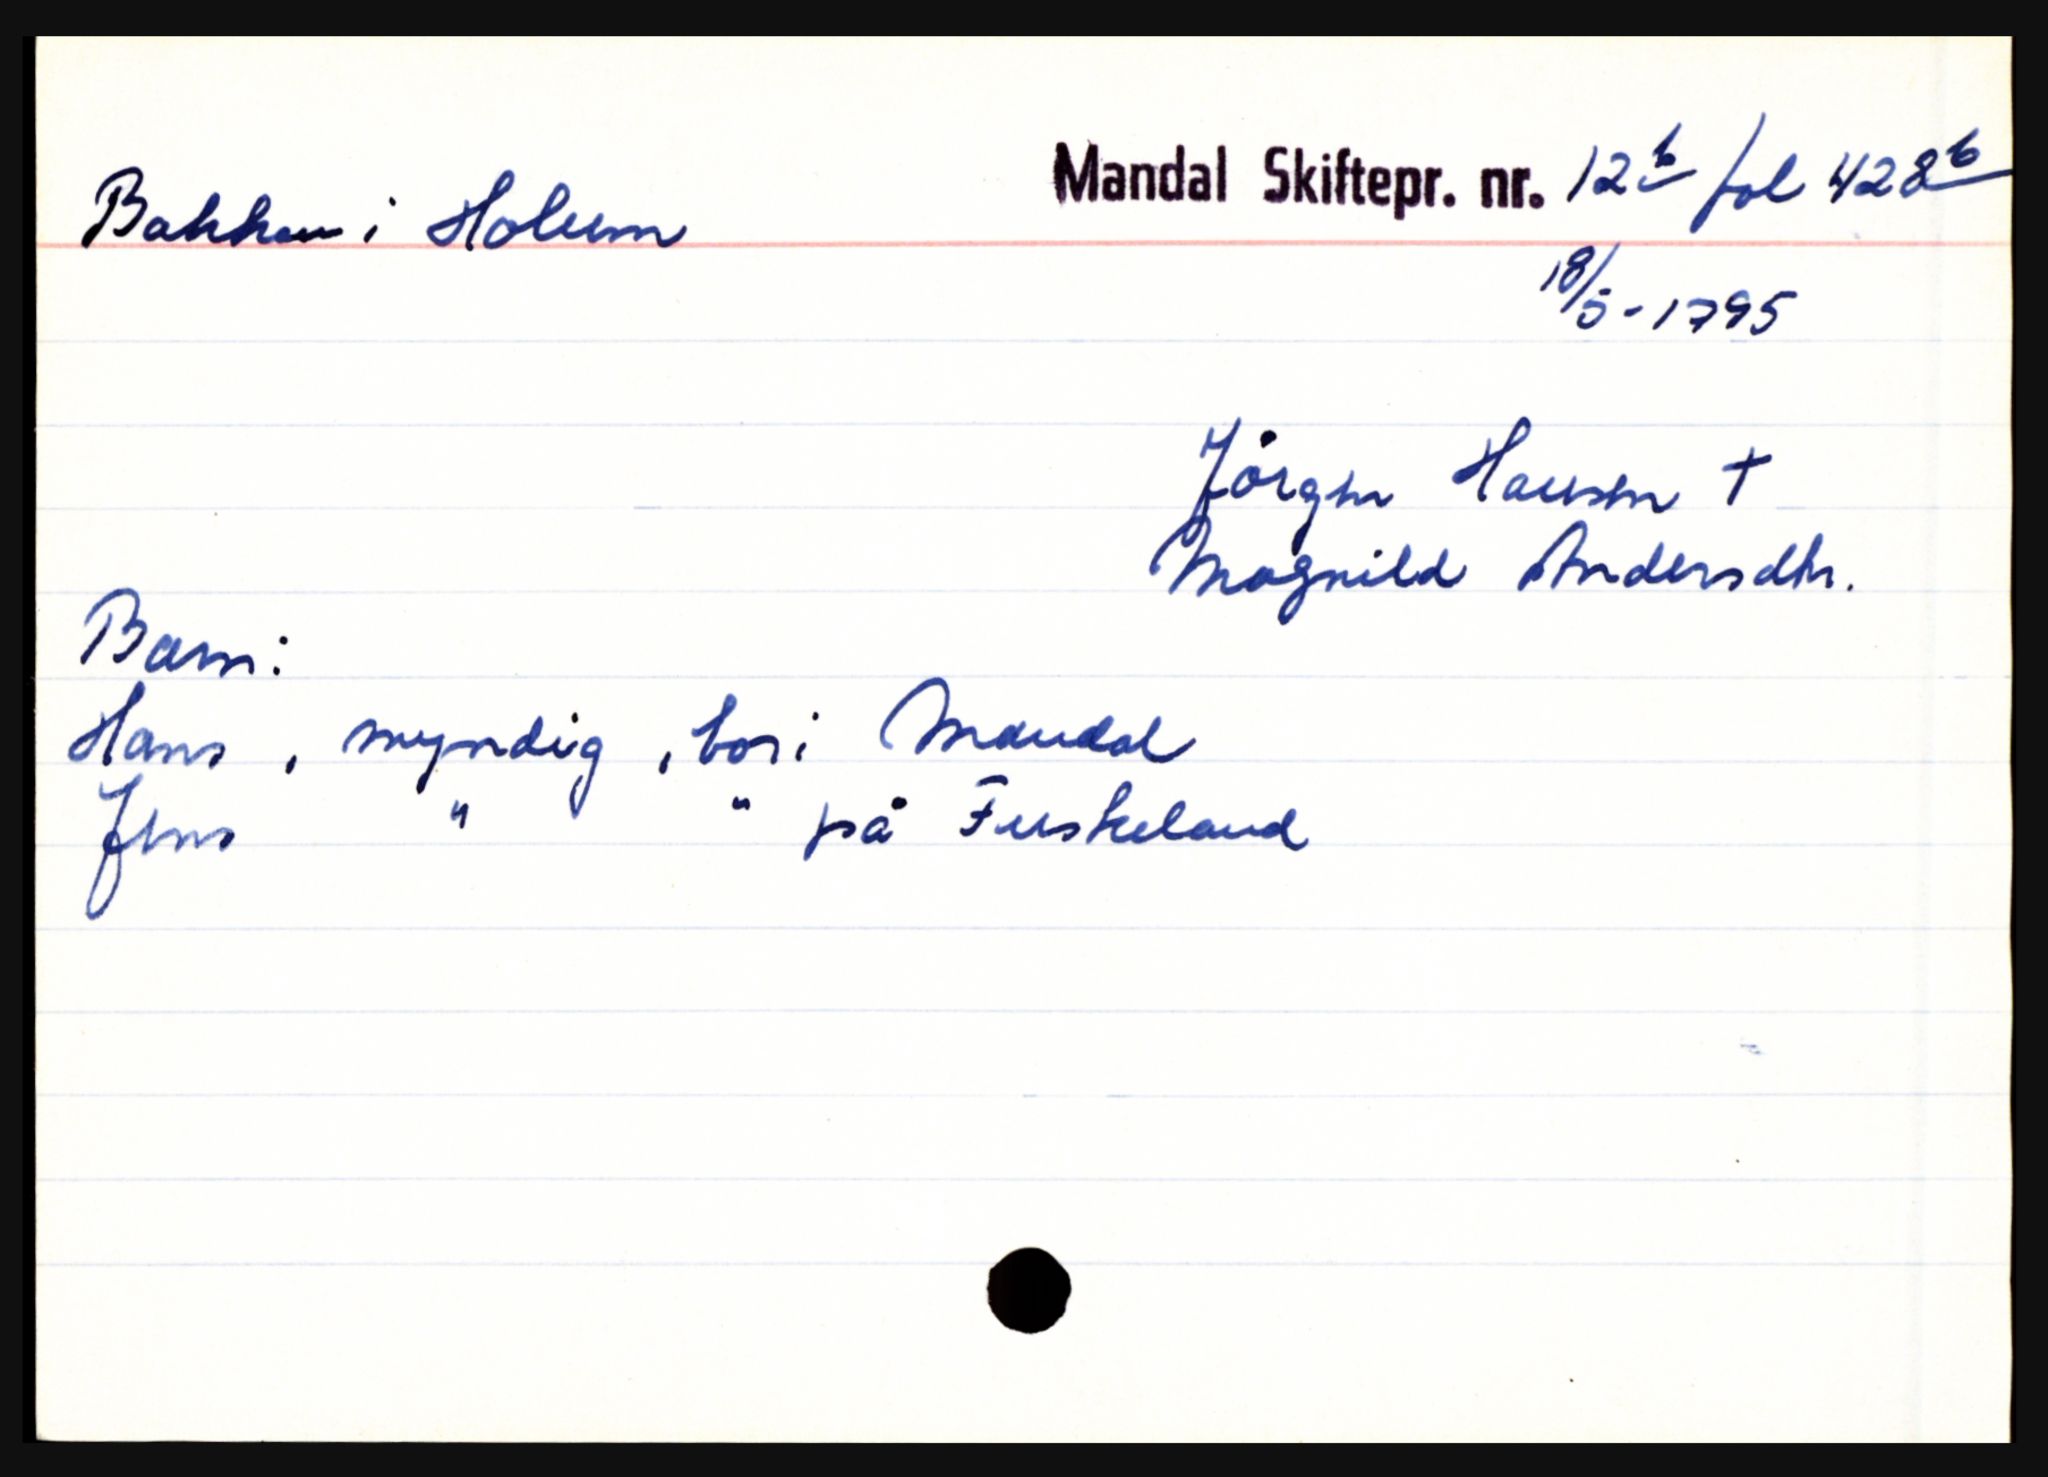 Bakken i Holum
Mandal Skiftepr. nr. 12b fol 428b
18/5-1795
Jörgen Hansen †
Magnild Andersdtr.
Barn:
Hans, myndig, bor i Mandal
Jens " " på Fuskeland